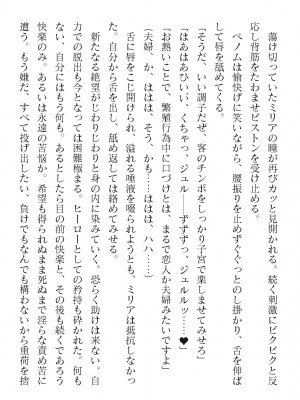 蕩け切っていたミリアの瞳が再びカッと見開かれる。続く刺激にビクビクと反
応し背筋をたわませピストンを受け止める。
ペノムは愉快げに笑いながら、腰振りを止めずぐぐっとのし掛かり、舌を伸ば
して唇を舐めてくる。
「そうだ、いい調子だぞ、客のチンポをしっかり子宮で楽しませてみせろ」
「はぁはあひいぃ、くちゃっ、ジュル――ずずずっ、ジュルルッ……♥」
「お熱いことで、繁殖行為中に口づけとは、まるで恋人か夫婦みたいですよ」
「夫婦、か、ははは、そう、も……ははは　ハハ……」
舌に唇をこじ開けられ、溢れる唾液を啜られようとも、ミリアは抵抗しなかっ
た。自分から舌を出し、舐め返しては絡めてみせる。
新たなる絶望がじわりじわりと身の内に染みていく。恐らく助けは来ない。自
力での脱出も今となっては困難極まる。ヒーローとしての矜持も砕かれた。何も
ない、自分にはもう何も。あるとしたら目の前の快楽と、その後も続くであろう
快楽のみ。あるいは永遠の苦悩か。希望も得られぬまま死ぬまで淫らな責め苦に
遭う。もう嫌だ、すべて投げ出したい、負けでもなんでも構わないから重荷を捨